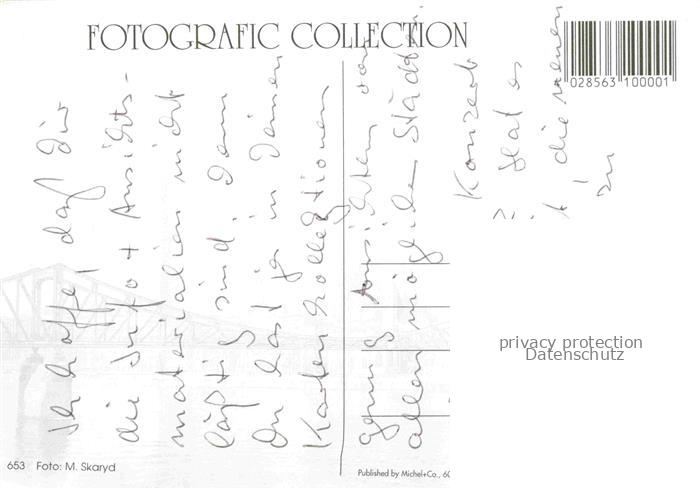 FOTOGRAFIC COLLECTION
028563 100001
Ich hoffe, daß dir
die Info + Ansichts-
materialien nicht
läßtig sind. Denn
Du hast ja in Deinen
Kartenkollektionen
genug Ansichten von
allen möglichen Städten.
Konzert
Hat es
die
zu
privacy protection
Datenschutz
653 Foto: M. Skaryd
Published by Michel+Co., 60